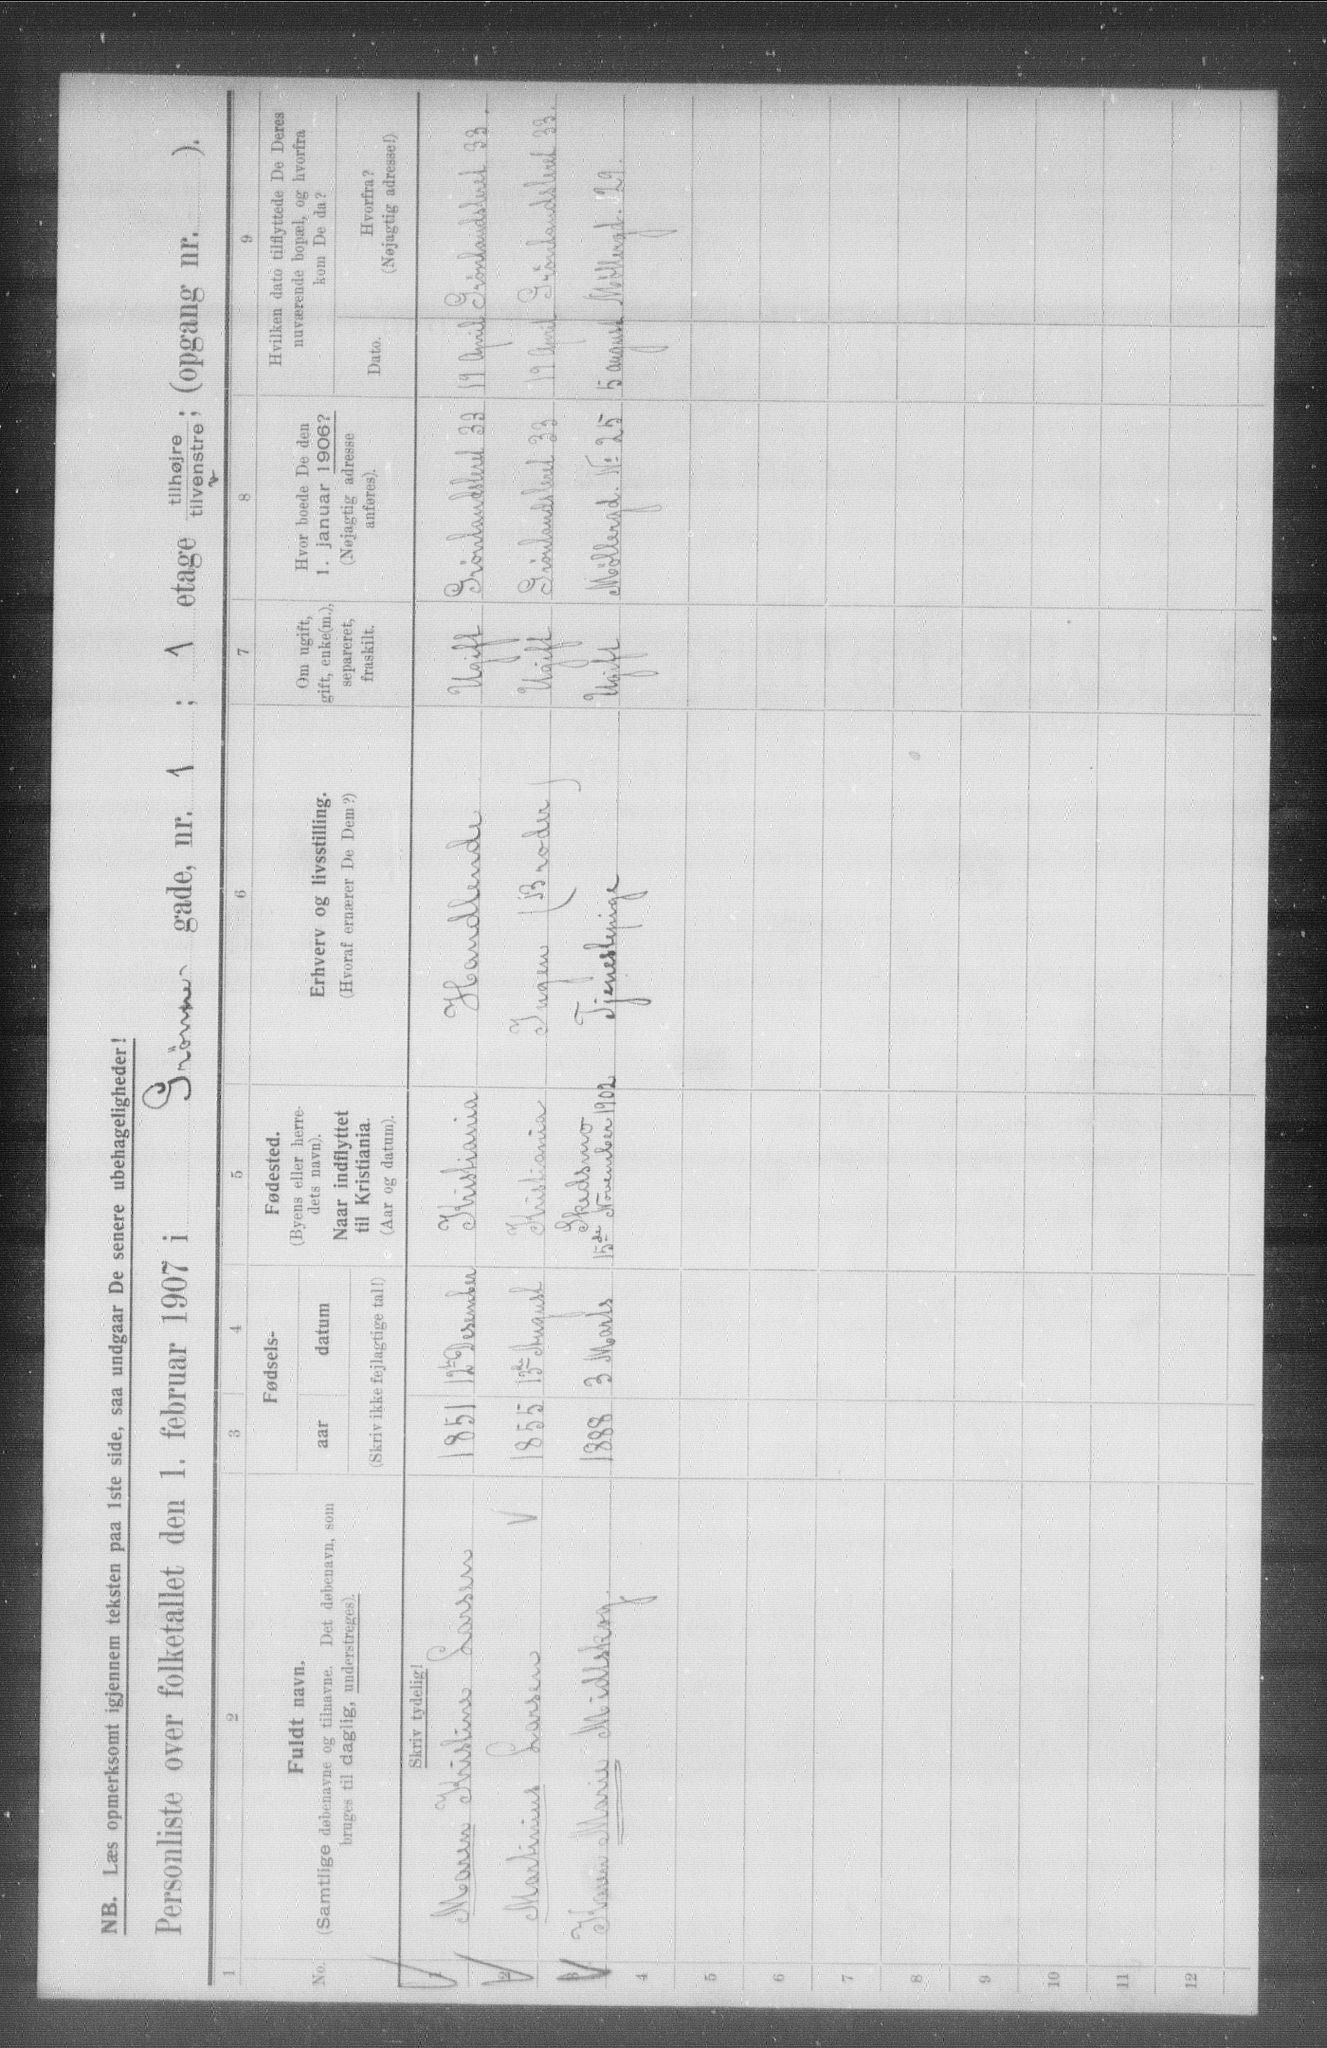 NB. Læs opmerksomt igjennem teksten paa 1ste side, saa undgaar De senere ubehageligheder!
Personliste over folketallet den 1. februar 1907 i Grönne gade, nr. 1 ; 1 etage tilhøjre / tilvenstre ; (opgang nr. ).
1 2 3 4 5 6 7 8 9
No.
Fuldt navn,
(Samtlige døbenavne og tilnavne. Det døbenavn, som
bruges til daglig, understreges).
Fødsels-
aar datum
(Skriv ikke fejlagtige tal!)
Fødested.
(Byens eller herre-
dets navn).
Naar indflyttet
til Kristiania.
(Aar og datum).
Erhverv og livsstilling.
(Hvoraf ernærer De Dem?)
Om ugift,
gift, enke(m.),
separeret,
fraskilt.
Hvor boede De den
1. januar 1906?
(Nøjagtig adresse
anføres).
Hvilken dato tilflyttede De Deres
nuværende bopæl, og hvorfra
kom De da?
Dato.
Hvorfra?
(Nøjagtig adresse!)
Skriv tydelig!
1 Maren Kristine Larsen 1851 12te Desember Kristiania Handlende Ugift Grönlandsleret 33 19 April Grönlandsleret 33.
2 Martinius Larsen V 1855 13de August Kristiania Ingen (Broder) Ugift Grönlandsleret 33 19 April Grönlandsleret 33.
3 Karen Marie Midtskog. 1888 3 Marts Skedsmo 15de November 1902 Tjenestepige Ugift Möllergd. No 25 5 august Möllergd. 29.
4
5
6
7
8
9
10
11
12